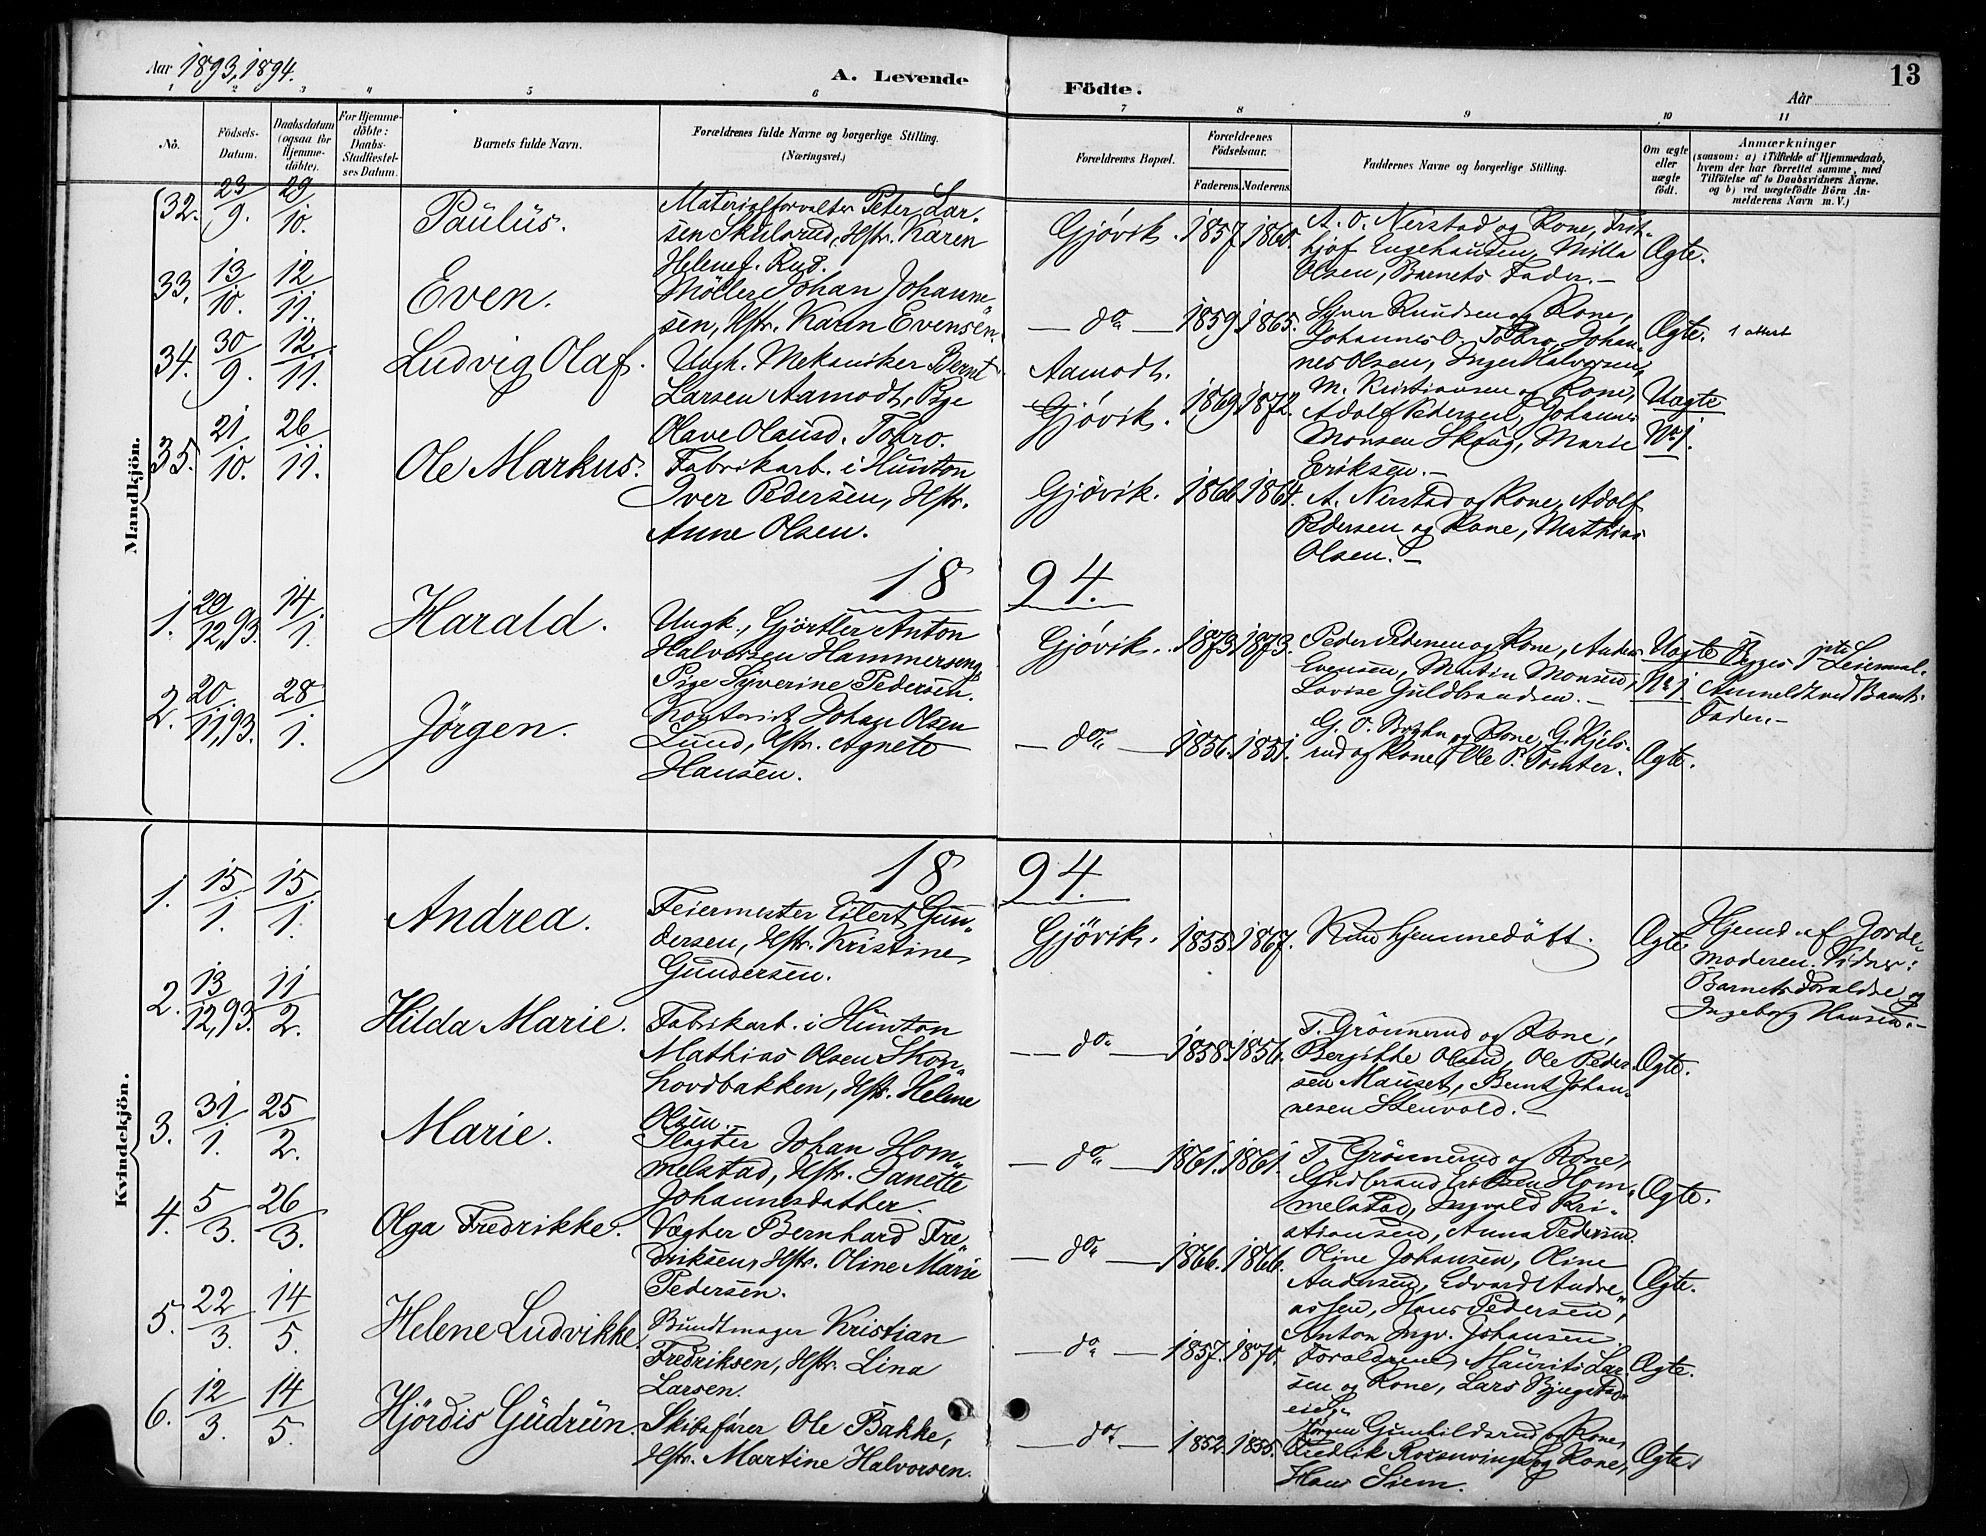 Aar 1893, 1894.
A. Levende
Födte.
13
Aar
1 2 3 4 5 6 7 8 9 10 11
No.
Födsels-
Datum.
Daabsdatum
(ogsaa for
Hjemme-
döbte).
For Hjemme-
döbte:
Daabs-
Stadfæstel-
ses Datum.
Barnets fulde Navn.
Forældrenes fulde Navne og borgerlige Stilling.
(Næringsvei.)
Forældrenes Bopæl.
Forældrenes
Födselsaar.
Faderens.
Moderens.
Faddernes Navne og borgerlige Stilling.
Om ægte
eller
uægte
födt.
Anmærkninger
(saasom: a) i Tilfælde af Hjemmedaab,
hvem der har forrettet samme, med
Tilföielse af to Daabsvidners Navne,
og b) ved uægtefödte Börn An-
melderens Navn m. V.)
Mandkjön.
32. 23/9. 29/10. Paulus.
Materialforvalter Peter Lar-
sen Skulsrud, Hstr. Karen
Helene f. Rud.
Gjövik. 1857. 1860.
A. O. Nerstad og Kone, Frit-
hjof Engehausen, Milla
Olsen, Barnets Fader.-
Ægte.
33. 13/10. 12/11. Even.
Möller Johan Johanne-
sen, Hstr. Karen Evensen.
do 1859. 1865.
Syver Knudsen og Kone,
Johannes O. Tobro, Johan-
nes Olsen, Inger Halvorsen,
Ægte. 1 attest
34. 30/9. 12/11. Ludvig Olaf.
Ungk. Mekaniker Bernt
Larsen Aamodt, Pige
Olave Olausd. Tobro.
Aamodt.
Gjövik. 1869. 1872.
M. Kristiansen og Kone,
Adolf Pedersen, Johannes
Monsen Skaug, Marie
Eriksen.-
Uægte
No 1.
35. 21/10. 26/11. Ole Markus.
Fabrikarb. i Hunton
Iver Pedersen, Hstr.
Anne Olsen.
Gjövik. 1866. 1864.
A. Nerstad og Kone, Adolf
Pedersen og Kone, Mathias
Olsen.-
Ægte
1894.
1. 29/12,93. 14/1. Harald.
Ungk., Gjörtler Anton
Halvorsen Hammerseng,
Pige Syverine Pedersen.
Gjövik. 1873. 1873.
Peder Pedersen og Kone, Anders
Evensen, Martin Monsen,
Lovise Guldbrandsen.-
Uægte
No 1
Begges 1ste Leiermaal.
Anmeldt ved Barnets
Fader.-
2. 20/11,93. 28/1. Jörgen.
Kontorist Johan Olsen
Lund, Hstr. Agnete
Hansen.
do 1856. 1851.
G. O. og Kone, G. Kjels-
rud og Kone, Ole P. Tomter.
Ægte.
Kvindekjön.
1894.
1. 15/1. 15/1. Andrea.
Feiermester Eilert Gun-
dersen, Hstr. Kristine
Gundersen.
Gjövik. 1855. 1867.
Kun hjemmedöbt.
Ægte.
Hjemd. af Jorde-
moderen. Vidner:
Barnets Forældre og
Ingeborg Hansen.-
2. 13/12,93. 11/2. Hilda Marie.
Fabrikarb. i Hunton
Mathias Olsen Skon-
hovdbakken, Hstr. Helene
Olsen.
do 1858. 1856.
T. Grönnerud og Kone,
Bergitte Olsen, Ole Peder-
sen Mauset, Bernt Johan-
nesen Stenvold.-
Ægte.
3. 31/1. 25/2. Marie.
Slagter Johan Hom-
melstad, Hstr. Janette
Johannesdatter.
do 1861. 1861.
T. Grönnerud og Kone,
Gudbrand Eriksen Hom-
melstad, Ingvald Kri-
stiansen, Anna Pedersen.
Ægte.
4. 5/3. 26/3. Olga Fredrikke.
Vægter Bernhard Fre-
driksen, Hstr. Oline Marie
Pedersen.
do 1866. 1866.
Oline Johansen, Oline
Andersen, Edvard Andre-
assen, Hans Pedersen,
Anton Ingv. Johansen.
Ægte.
5. 22/3. 14/5. Helene Ludvikke.
Bundtmager Kristian
Fredriksen, Hstr. Lina
Larsen.
do 1857. 1870.
Forældrene, Maurits Lar-
sen og Kone, Lars
Ægte.
6. 12/3. 14/5. Hjördis Gudrun.
Skibsförer Ole Bakke,
Hstr. Martine Halvorsen.
do 1852. 1855.
Jörgen Gunhildsrud og Kone,
Fredrik og Kone,
Hans Siem.
Ægte.